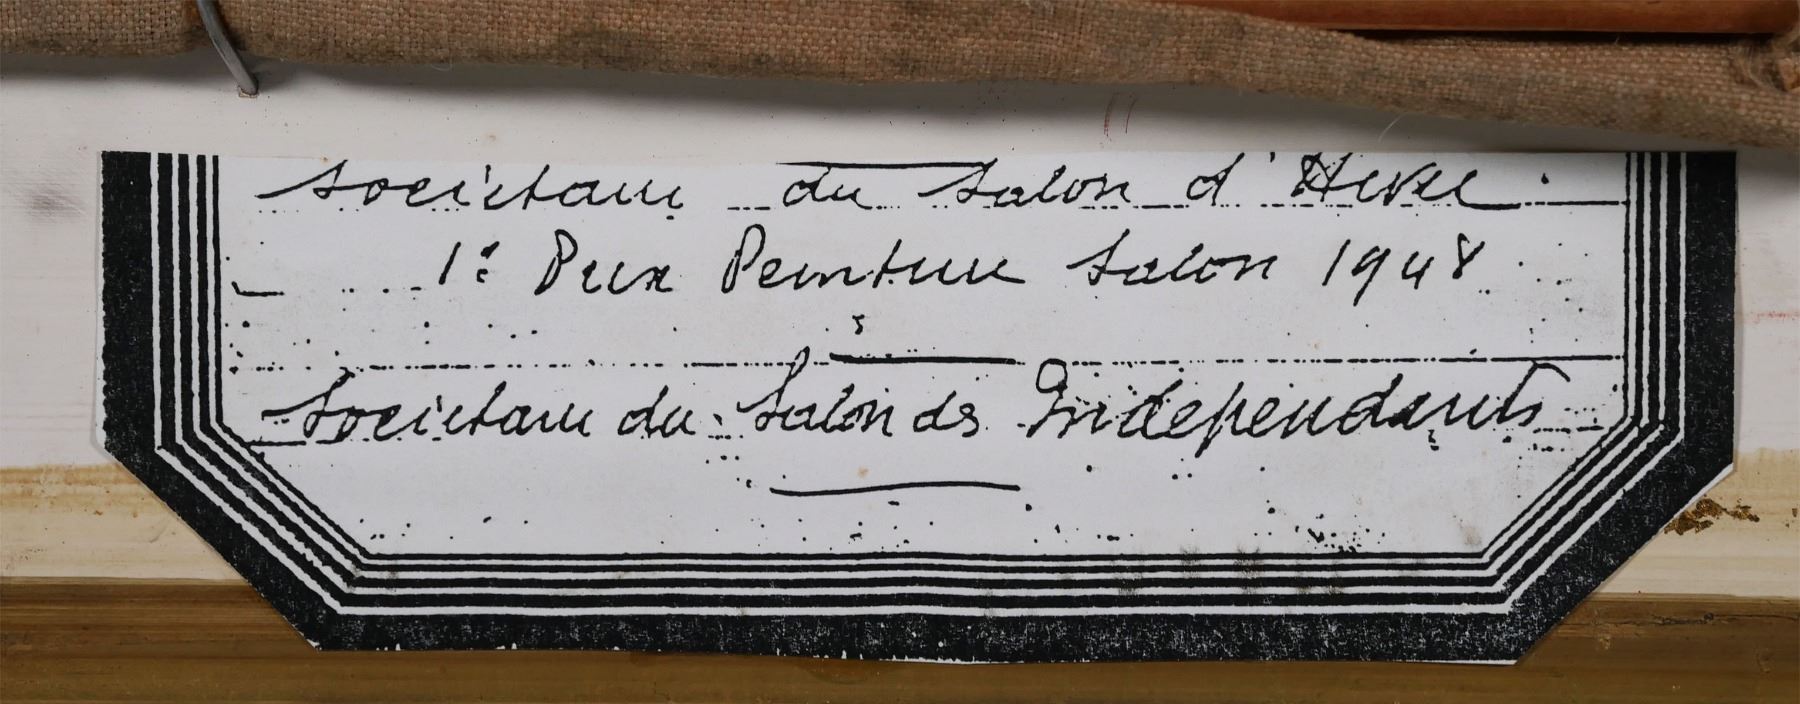 Sociétaire du Salon d'Hiver.
1er Prix Peinture Salon 1948
Sociétaire du Salon des Indépendants